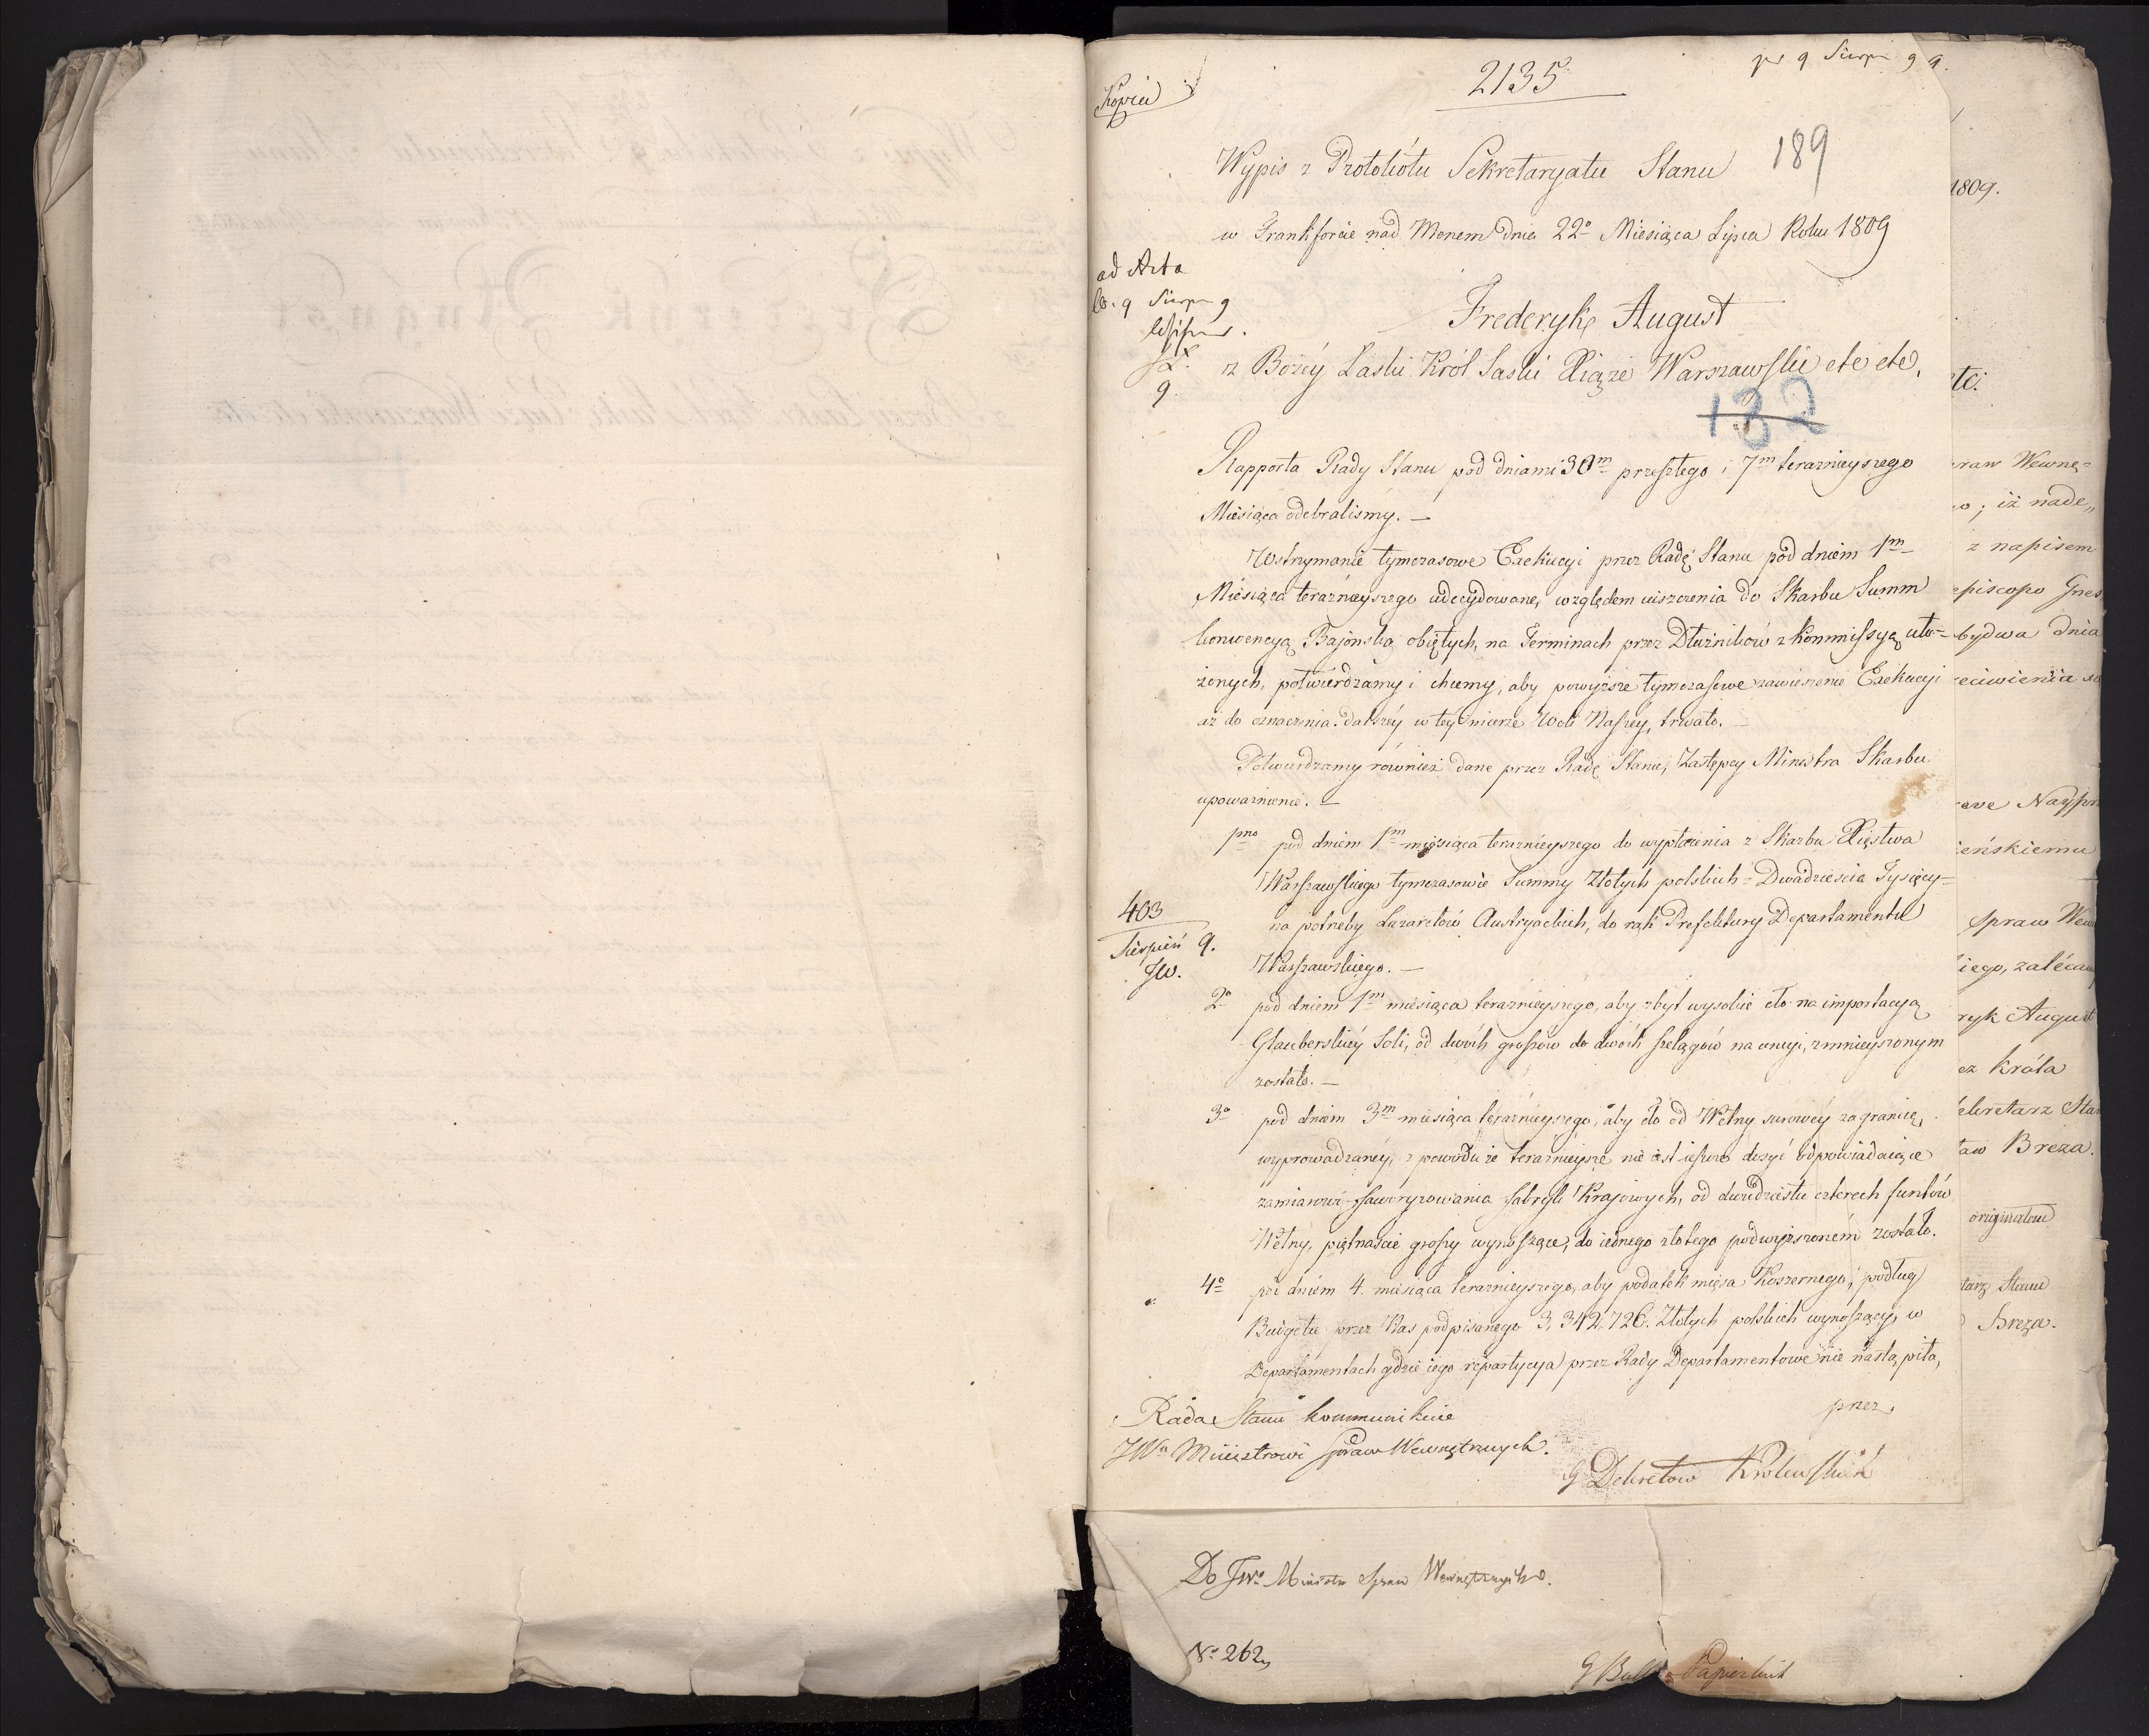 Kopia
2135
pr 9 Sierp 9
189
Wypis z Protokółu Sekretaryatu Stanu
w Frankforcie nad Menem dnia 22º Miesiąca Lipca Roku 1809
ad Acta
9 Sierp 9
9.
Frederyk August
z Bożéy Łaski Król Saski Xiąże Warszawski etc etc.
132
Rapporta Rady Stanu pod dniami 30m przeszłego i 7m terazniejszego
Miesiąca odebralismy. —
Wstrzymanie tymczasowe Exekucyi przez Radę Stanu pod dniem 1m
Miesiąca teraźnieyszego udecydowane, względem uiszczenia do Skarbu Summ
konwencyą Bajońską obiętych, na Terminach przez Dłużników z Kommissyą uło=
żonych, potwierdzamy i chcemy, aby powyższe tymczasowe zawieszenie Exekucyi
aż do oznaczenia dalszéy w tey mierze Woli Naszey, trwało. —
Potwierdzamy również dane przez Radę Stanu, Zastępcy Ministra Skarbu
upoważnienie. —
1mo pod dniem 1m miesiąca teraznieyszego do wypłacenia z Skarbu Xięstwa
Warszawskiego tymczasowie Summy Złotych polskich = Dwadzieścia Tysięcy =
na potrzeby Lazaretów Austryackich, do rąk Prefektury Departamentu
Warszawskiego. —
403
Sierpień 9.
JW.
2º pod dniem 1m miesiąca teraznieyszego, aby zbyt wysokie cło na importacyą
Glauberskiéy Soli, od dwóch groszów do dwóch szelągów na uncyi, zmnieyszonym
zostało. —
3º pod dniem 3m miesiąca teraźnieyszego, aby cło od Wełny surowéy zagranicę
wyprowadzanéy, z powodu że teraznieysze nie iest ieszcze dosyć odpowiadaiące
zamiarowi faworyzowania fabryk Krajowych, od dwudziestu czterech funtów
Wełny, piętnaście groszy wynoszące, do iednego złotego podwyższoném zostało.
4º pod dniem 4. miesiąca teraznieyszego, aby podatek mięsa Koszernego, podług
Budgetu przez Nas podpisanego 3,342,726. Złotych polskich wynoszący, w
Departamentach gdzie iego repartycya przez Rady Departamentowe nie nastąpiła,
przez
Rada Stanu kommunikuie
JWu Ministrowi Spraw Wewnętrznych.
Dekretow Krolewskich
Do JWo Ministra Spraw Wewnętrznych.
Nº 262
1809.
etc.
raw Wewnę=
o; iż nade„
z napisem
episcopo Gnes
bydwa dnia
eciwienia
eve Nayprz
ieńskiemu
Spraw Wew
iego, zaléca
ryk August
ez Króla
ekretarz Stan
aw Breza.
originałem
tarz Stanu
Breza.